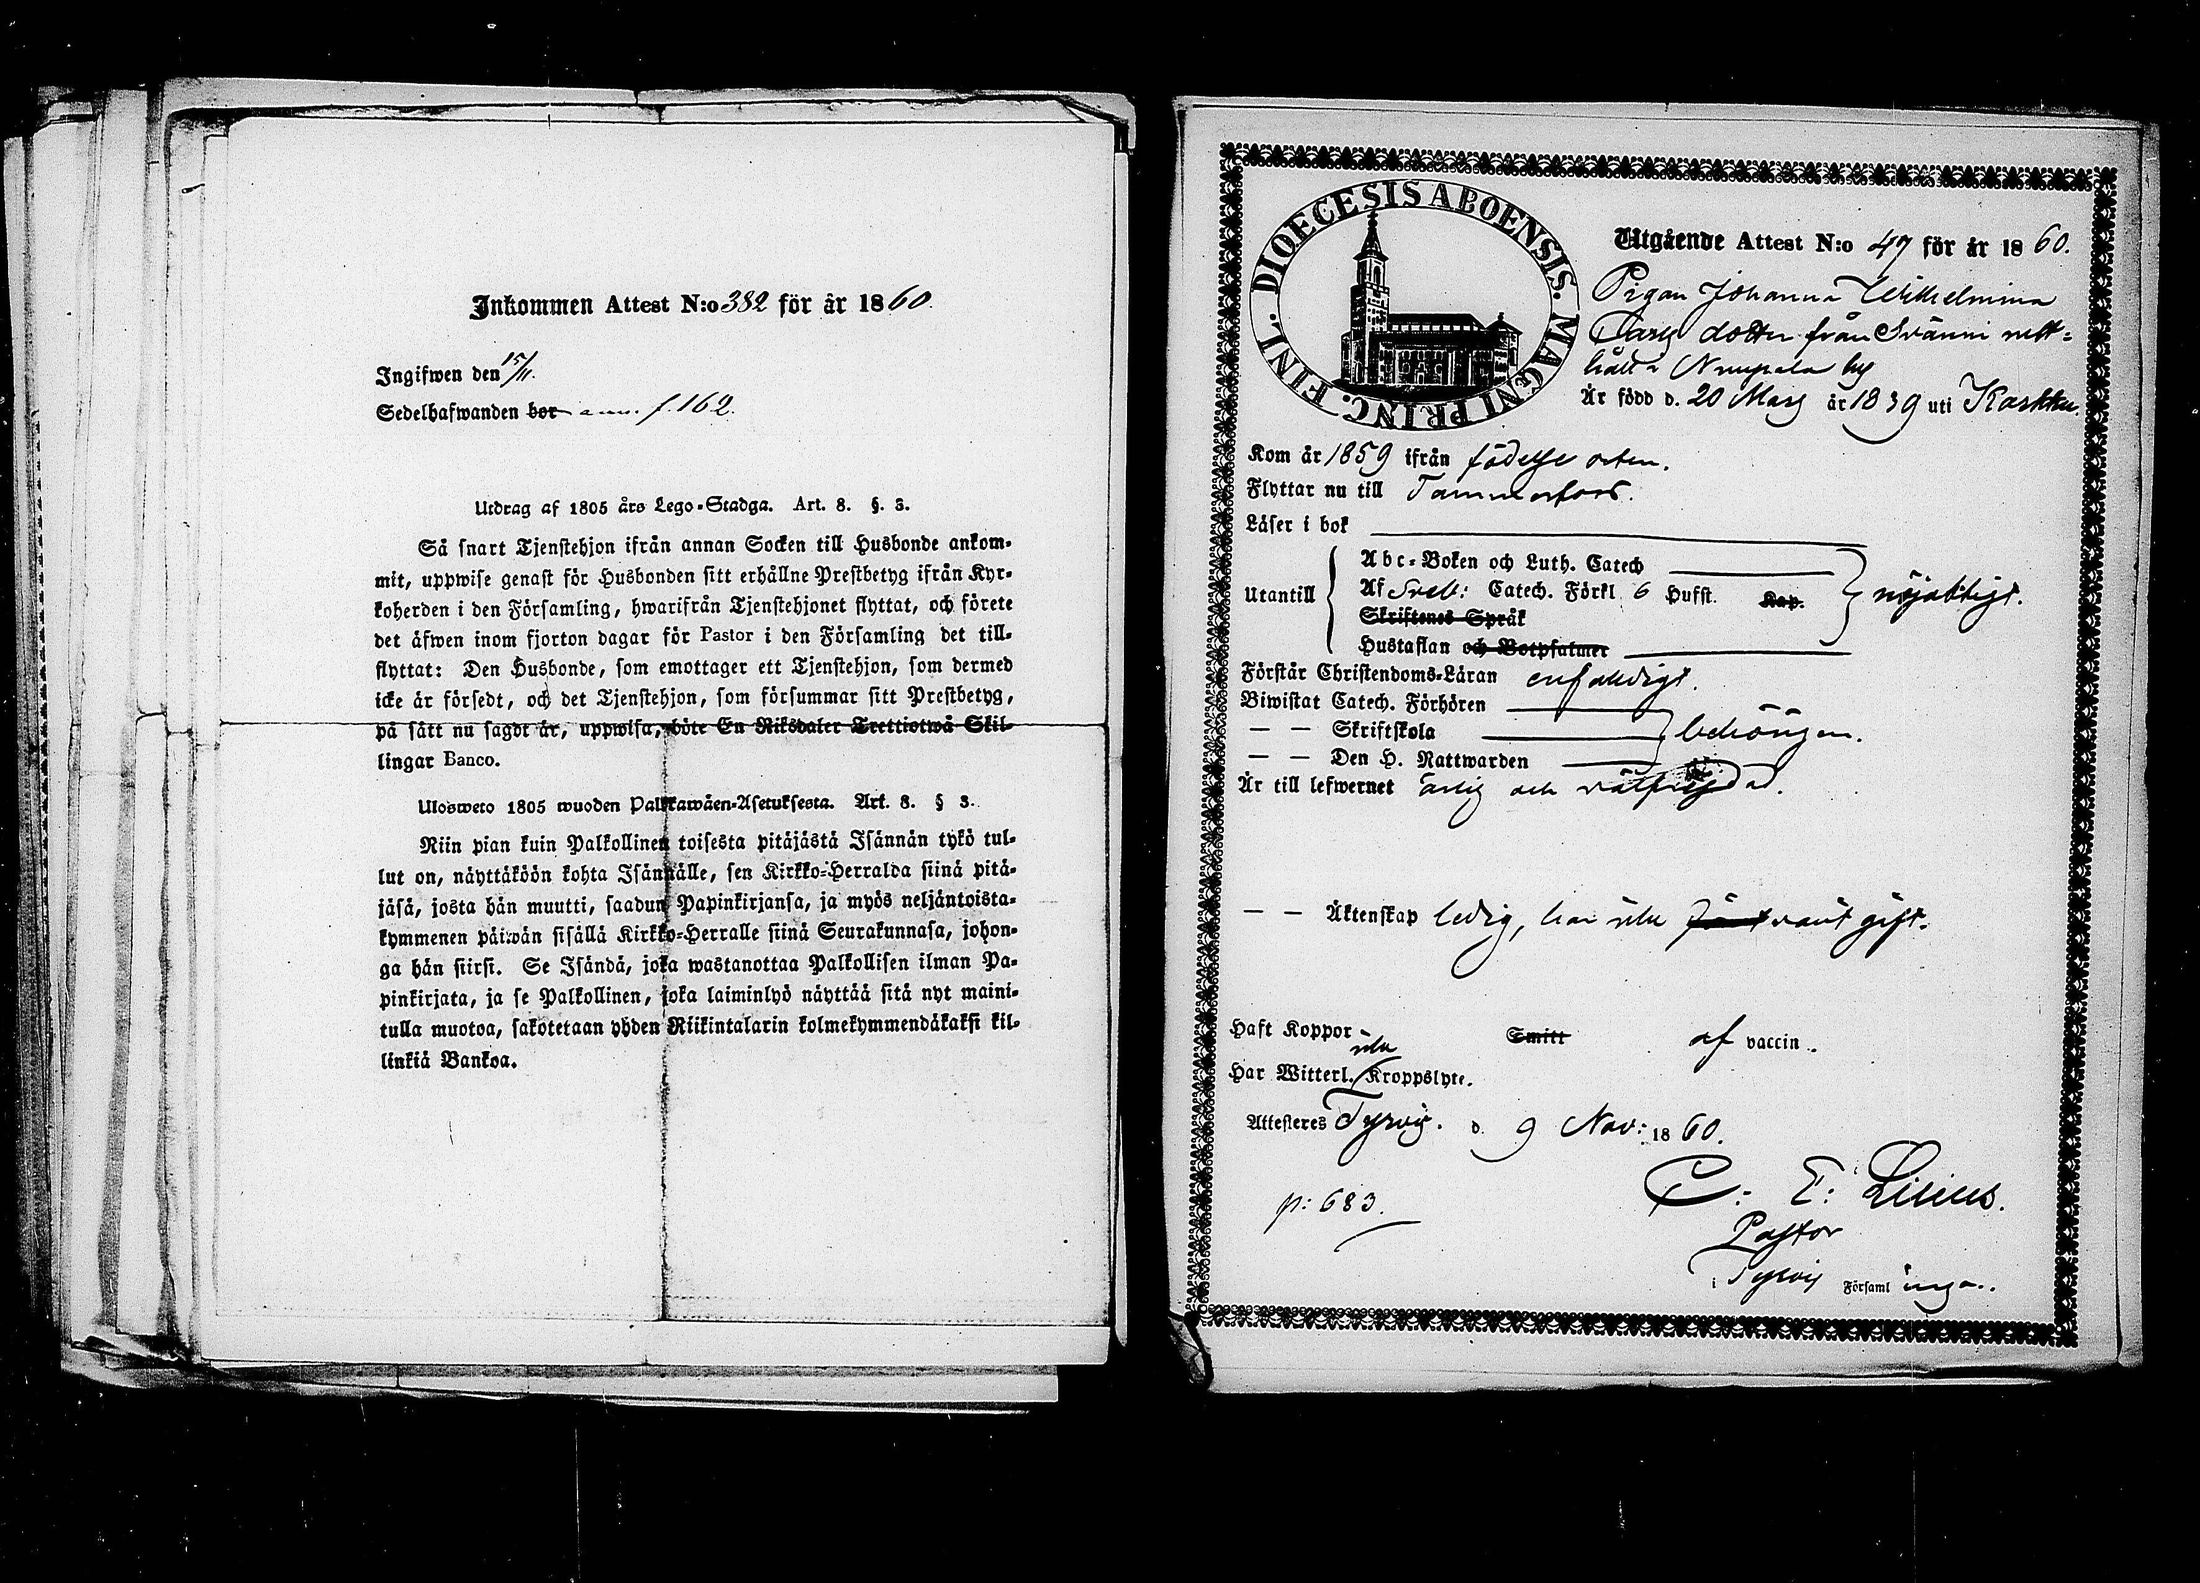 Inkommen Attest N:o 382 för år 1860.
Ingifwen den 15/11.
Sedelhafwanden bor ann. f. 162.
Utdrag af 1805 års Lego-Stadga. Art. 8. §. 3.
Så snart Tjenstehjon ifrån annan Socken till Husbonde ankom-
mit, uppwise genast för Husbonden sitt erhållne Prestbetyg ifrån Kyr-
koherden i den Församling, hwarifrån Tjenstehjonet flyttat, och förete
det äfwen inom fjorton dagar för Pastor i den Församling det till-
flyttat: Den Husbonde, som emottager ett Tjenstehjon, som dermed
icke är försedt, och det Tjenstehjon, som försummar sitt Prestbetyg,
på sätt nu sagdt är, uppwisa, böte En Riksdaler Trettiotwå Skil-
lingar Banco.
Ulosweto 1805 wuoden Palkkawäen-Asetuksesta. Art. 8. § 3.
Niin pian kuin Palkollinen toisesta pitäjästä Isännän tykö tul-
lut on, näyttäköön kohta Isännälle, sen Kirkko-Herralda siinä pitä-
jäsä, josta hän muutti, saadun Papinkirjansa, ja myös neljäntoista-
kymmenen päiwän sisällä Kirkko-Herralle siinä Seurakunnasa, johon-
ga hän siirsi. Se Isändä, joka wastanottaa Palkollisen ilman Pa-
pinkirjata, ja se Palkollinen, joka laiminlyö näyttää sitä nyt maini-
tulla muotoa, sakotetaan yhden Riikintalarin kolmekymmendäkaksi kil-
linkiä Bankoa.
DIOECESIS ABOENSIS. MAGNI PRINC. FINL.
Utgående Attest N:o 47 för år 1860.
Pigan Johanna Wilhelmina
Larsdotter från Svänni rust-
håll i Nuupala by
Är född d. 20 Mars år 1839 uti Karkku.
Kom år 1859 ifrån födelse orten.
Flyttar nu till Tammerfors.
Läser i bok
Utantill
Abc-Boken och Luth. Catech
Af Sveb: Catech. Förkl 6 Hufst. Kap.
Skriftenes Språk
Hustaflan och Botpsalmer
nöjaktigt.
Förstår Christendoms-Läran enfaldigt.
Biwistat Catech. Förhören
— — Skriftskola
behörigen.
— — Den H. Nattwarden
Är till lefwernet ärlig och välfrejdad.
— — Äktenskap ledig, har icke varit gift.
Haft Koppor Smitt af vaccin.
Har Witterl. icke Kroppslyte.
Attesteres Tyrvis. d. 9 Nov: 1860.
C: E: Lilius.
p: 683.
Pastor
i Tyrvis Församlinga.